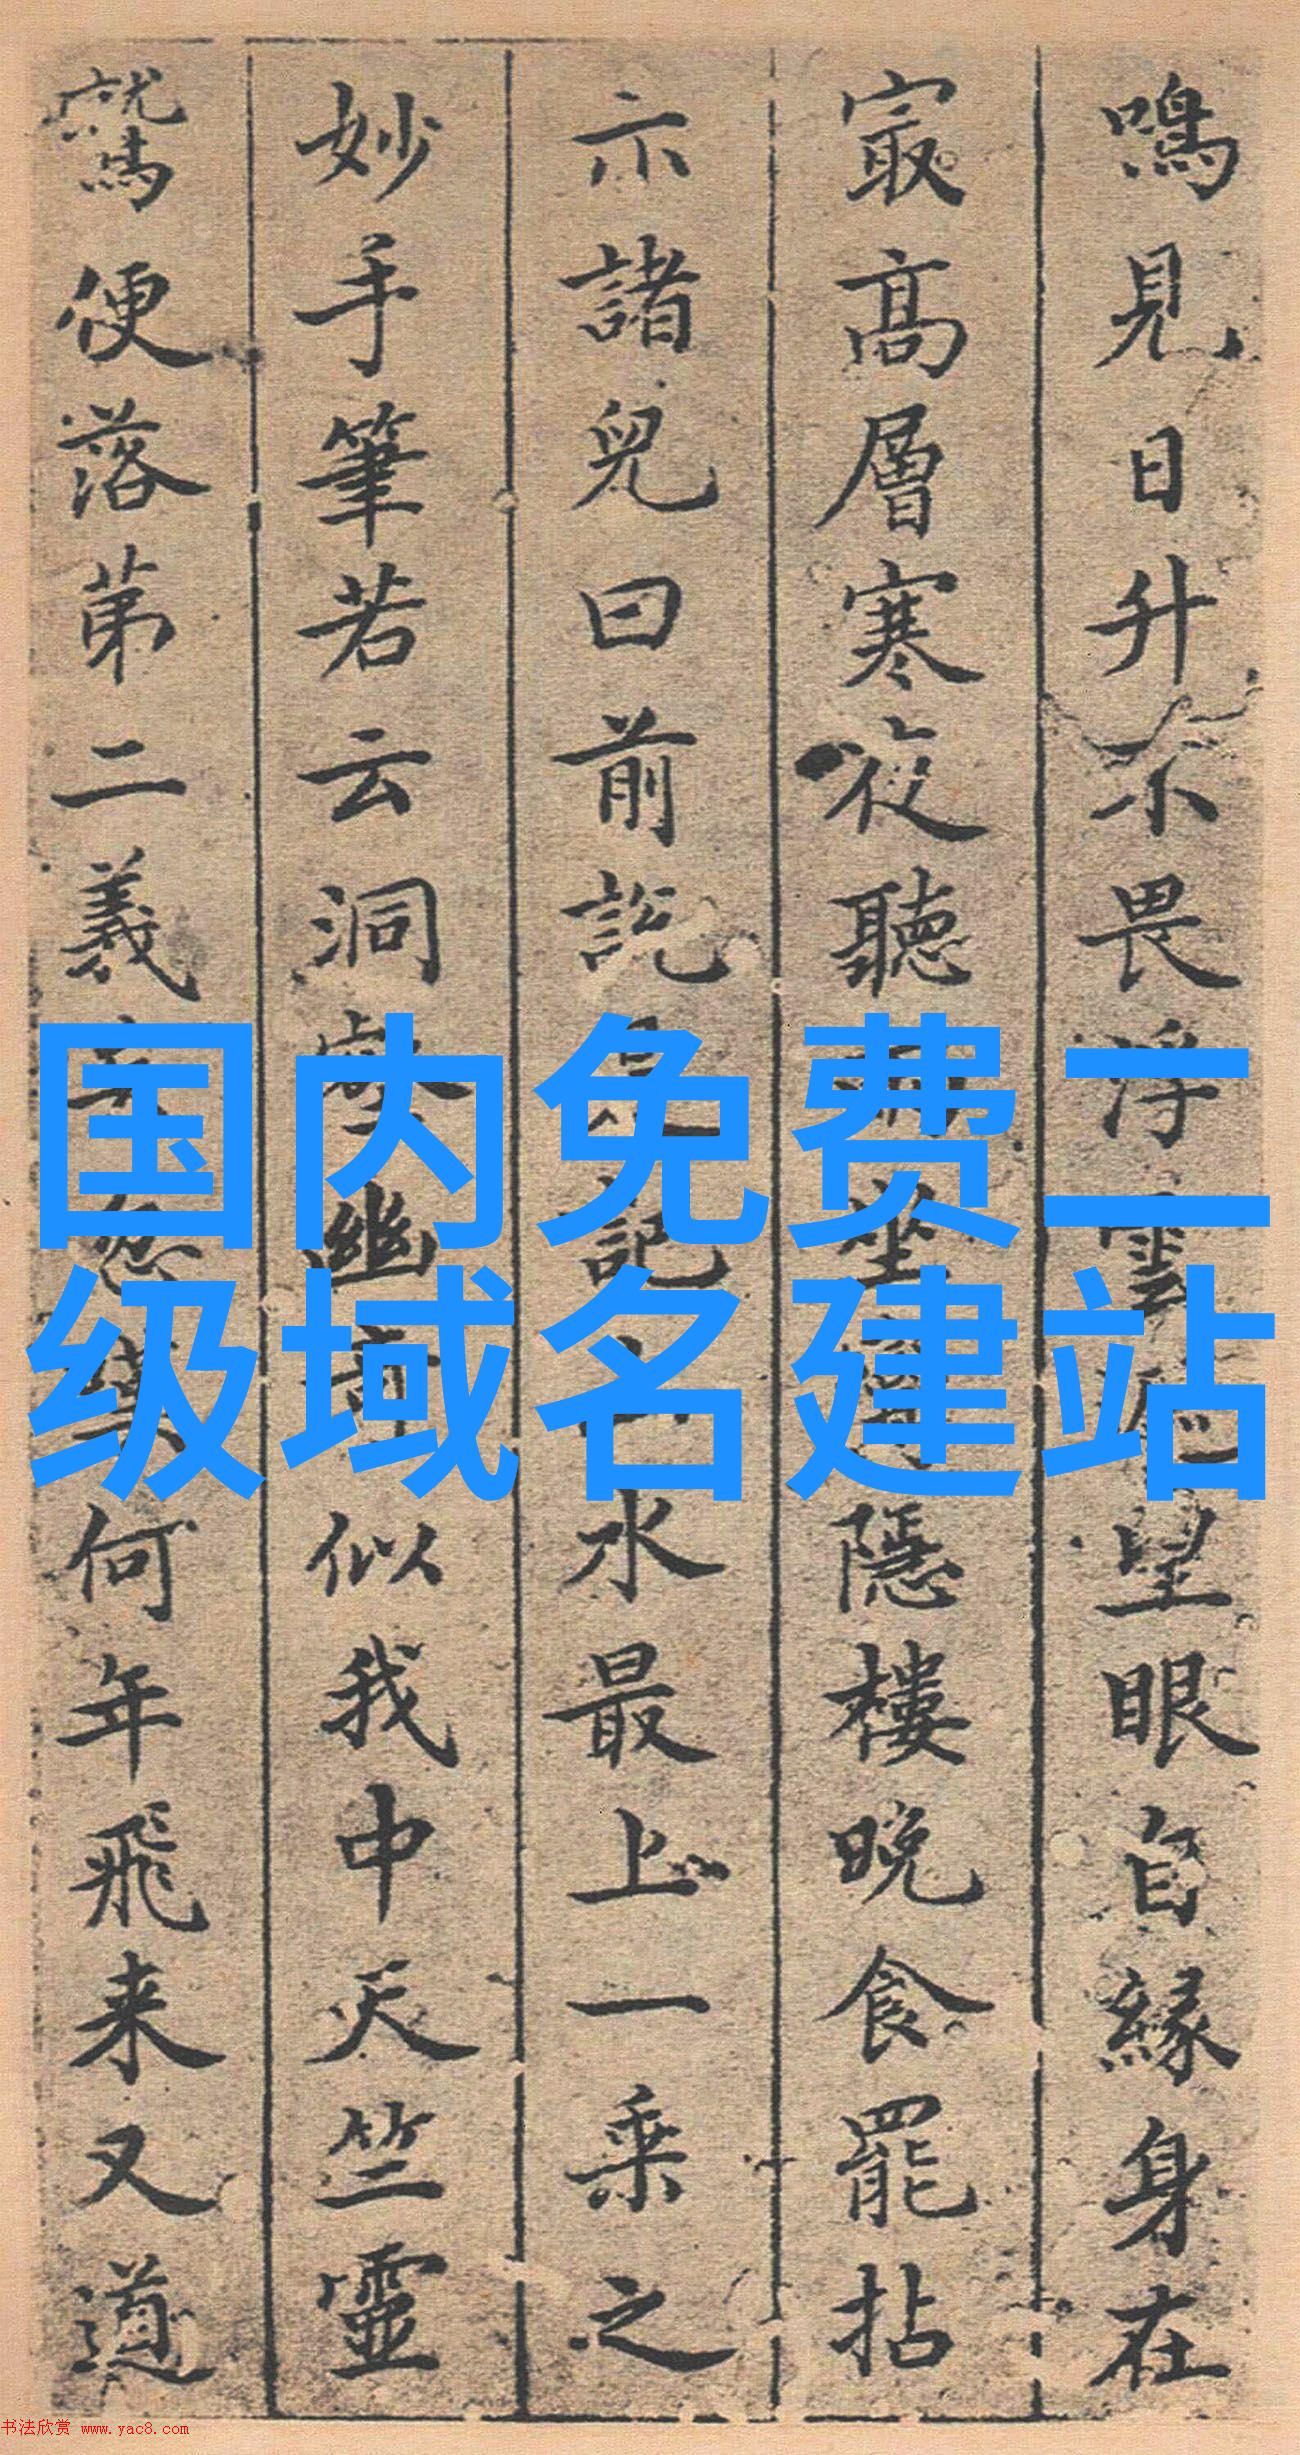 鳴見日升不畏浮雲望眼自緣身在
冣高層寒夜聽坐隱樓晚食罷拈
示諸兒曰前說記水最上一乘之
妙手筆若云洞壑幽奇似我中天竺靈
鷲便落苐二義何年飛来又道
国内免费二
级域名建站
书法欣赏 www.yac8.com